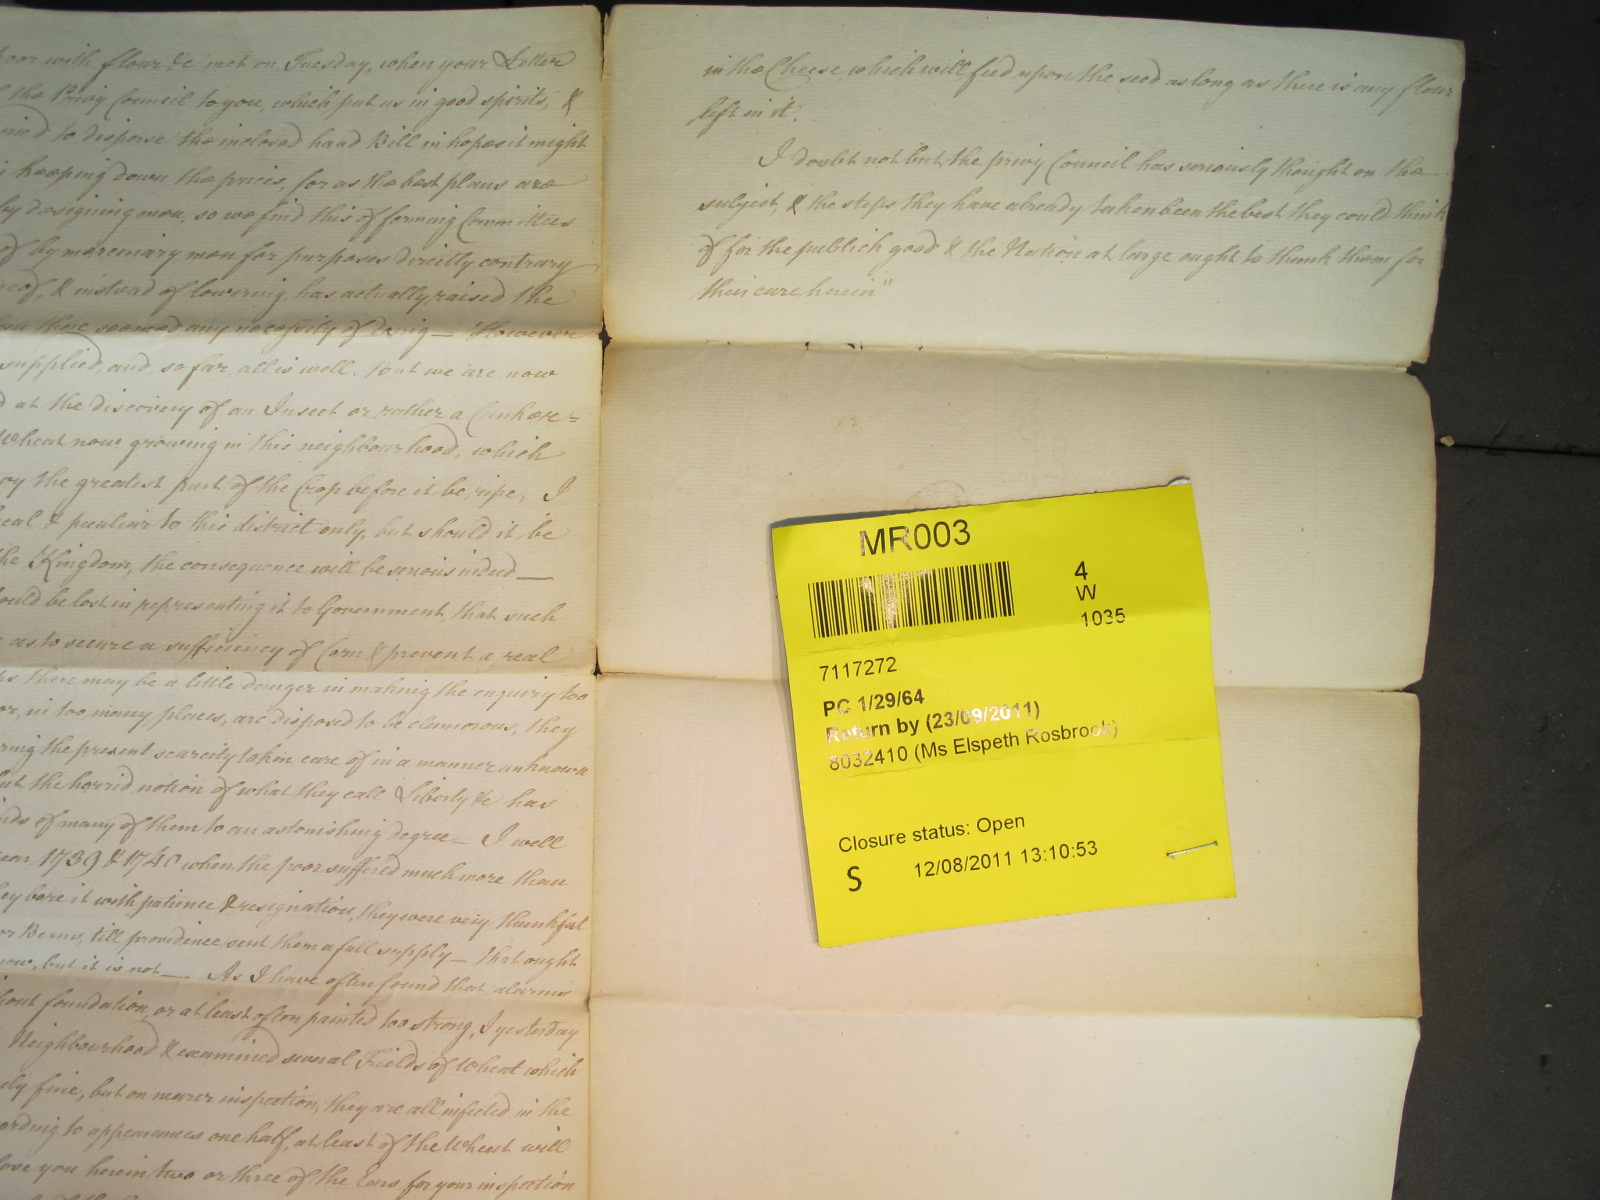 oor with flour &c met on Tuesday, when your Letter
the Privy Council to you, which put us in good spirits, &
to disperse the inclosed hand Bill in hopes it might
keeping down the prices, for as the best plans are
by designing men, so we find this of forming Committees
of by mercinary men for purposes directly contrary
& instead of lowering has actually raised the
there seemed any necessity of doing — However
supplied, and, so far, all is well. but we are now
at the discovery of an Insect or rather a Canker=
Wheat now growing in this neighbourhood, which
oy the greatest part of the Crop before it be ripe, I
& peculiar to this district only, but should it be
the Kingdom, the consequence will be serious indeed —
ould be lost in representing it to Government, that such
as to secure a sufficiency of Corn & prevent a real
there may be a little danger in making the enquiry too
or, in too many places, are disposed to be clamorous, they
ring the present scarcity taken care of in a manner unknown
ut the horrid notion of what they call Liberty &c has
of many of them to an astonishing degree — I well
1739 & 1740 when the poor suffered much more than
ey bore it with patience & resignation, they were very thankful
or Beans, till providence sent them a full supply — that ought
now, but it is not — As I have often found that alarms
hout foundation, or at least often painted too strong, I yesterday
Neighbourhood & examined several Fields of Wheat which
ely fine, but on nearer inspection, they are all infected in the
ording to appearances one half, at least of the Wheat will
lose you herein two or three of the Ears for your inspection
in the Cheese, which will feed upon the seed as long as there is any flour
left in it.
I doubt not but the privy Council has seriously thought on the
subject, & the steps they have already taken been the best they could think
of for the publick good & the Nation at large ought to thank them for
their care herein"
MR003
4
W
1035
7117272
PC 1/29/64
Return by (23/09/2011)
8032410 (Ms Elspeth Rosbrook)
Closure status: Open
S 12/08/2011 13:10:53